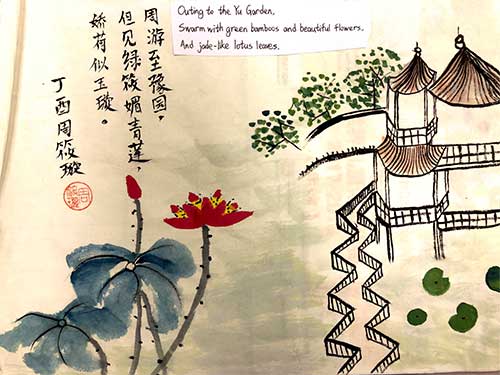 周游至豫园，
但见绿筱媚青莲，
娇荷似玉璇。
丁酉周筱璇
Outing to the Yu Garden.
Swarm with green bamboos and beautiful flowers.
And jade-like lotus leaves.